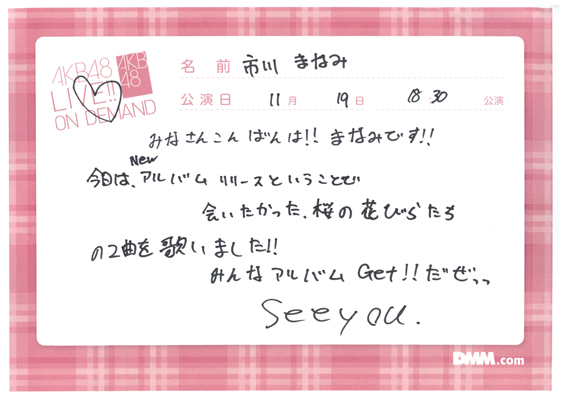 AKB48
LIVE!!
ON DEMAND
AKB
48
名前 市川 まなみ
公演日 11月 19日 18 30 公演
みなさんこんばんは!! まなみです!!
New
今日は、アルバム リリースということで
会いたかった、桜の花びらたち
の2曲を歌いました!!
みんなアルバム Get!!だぜっっ
See you.
DMM.com